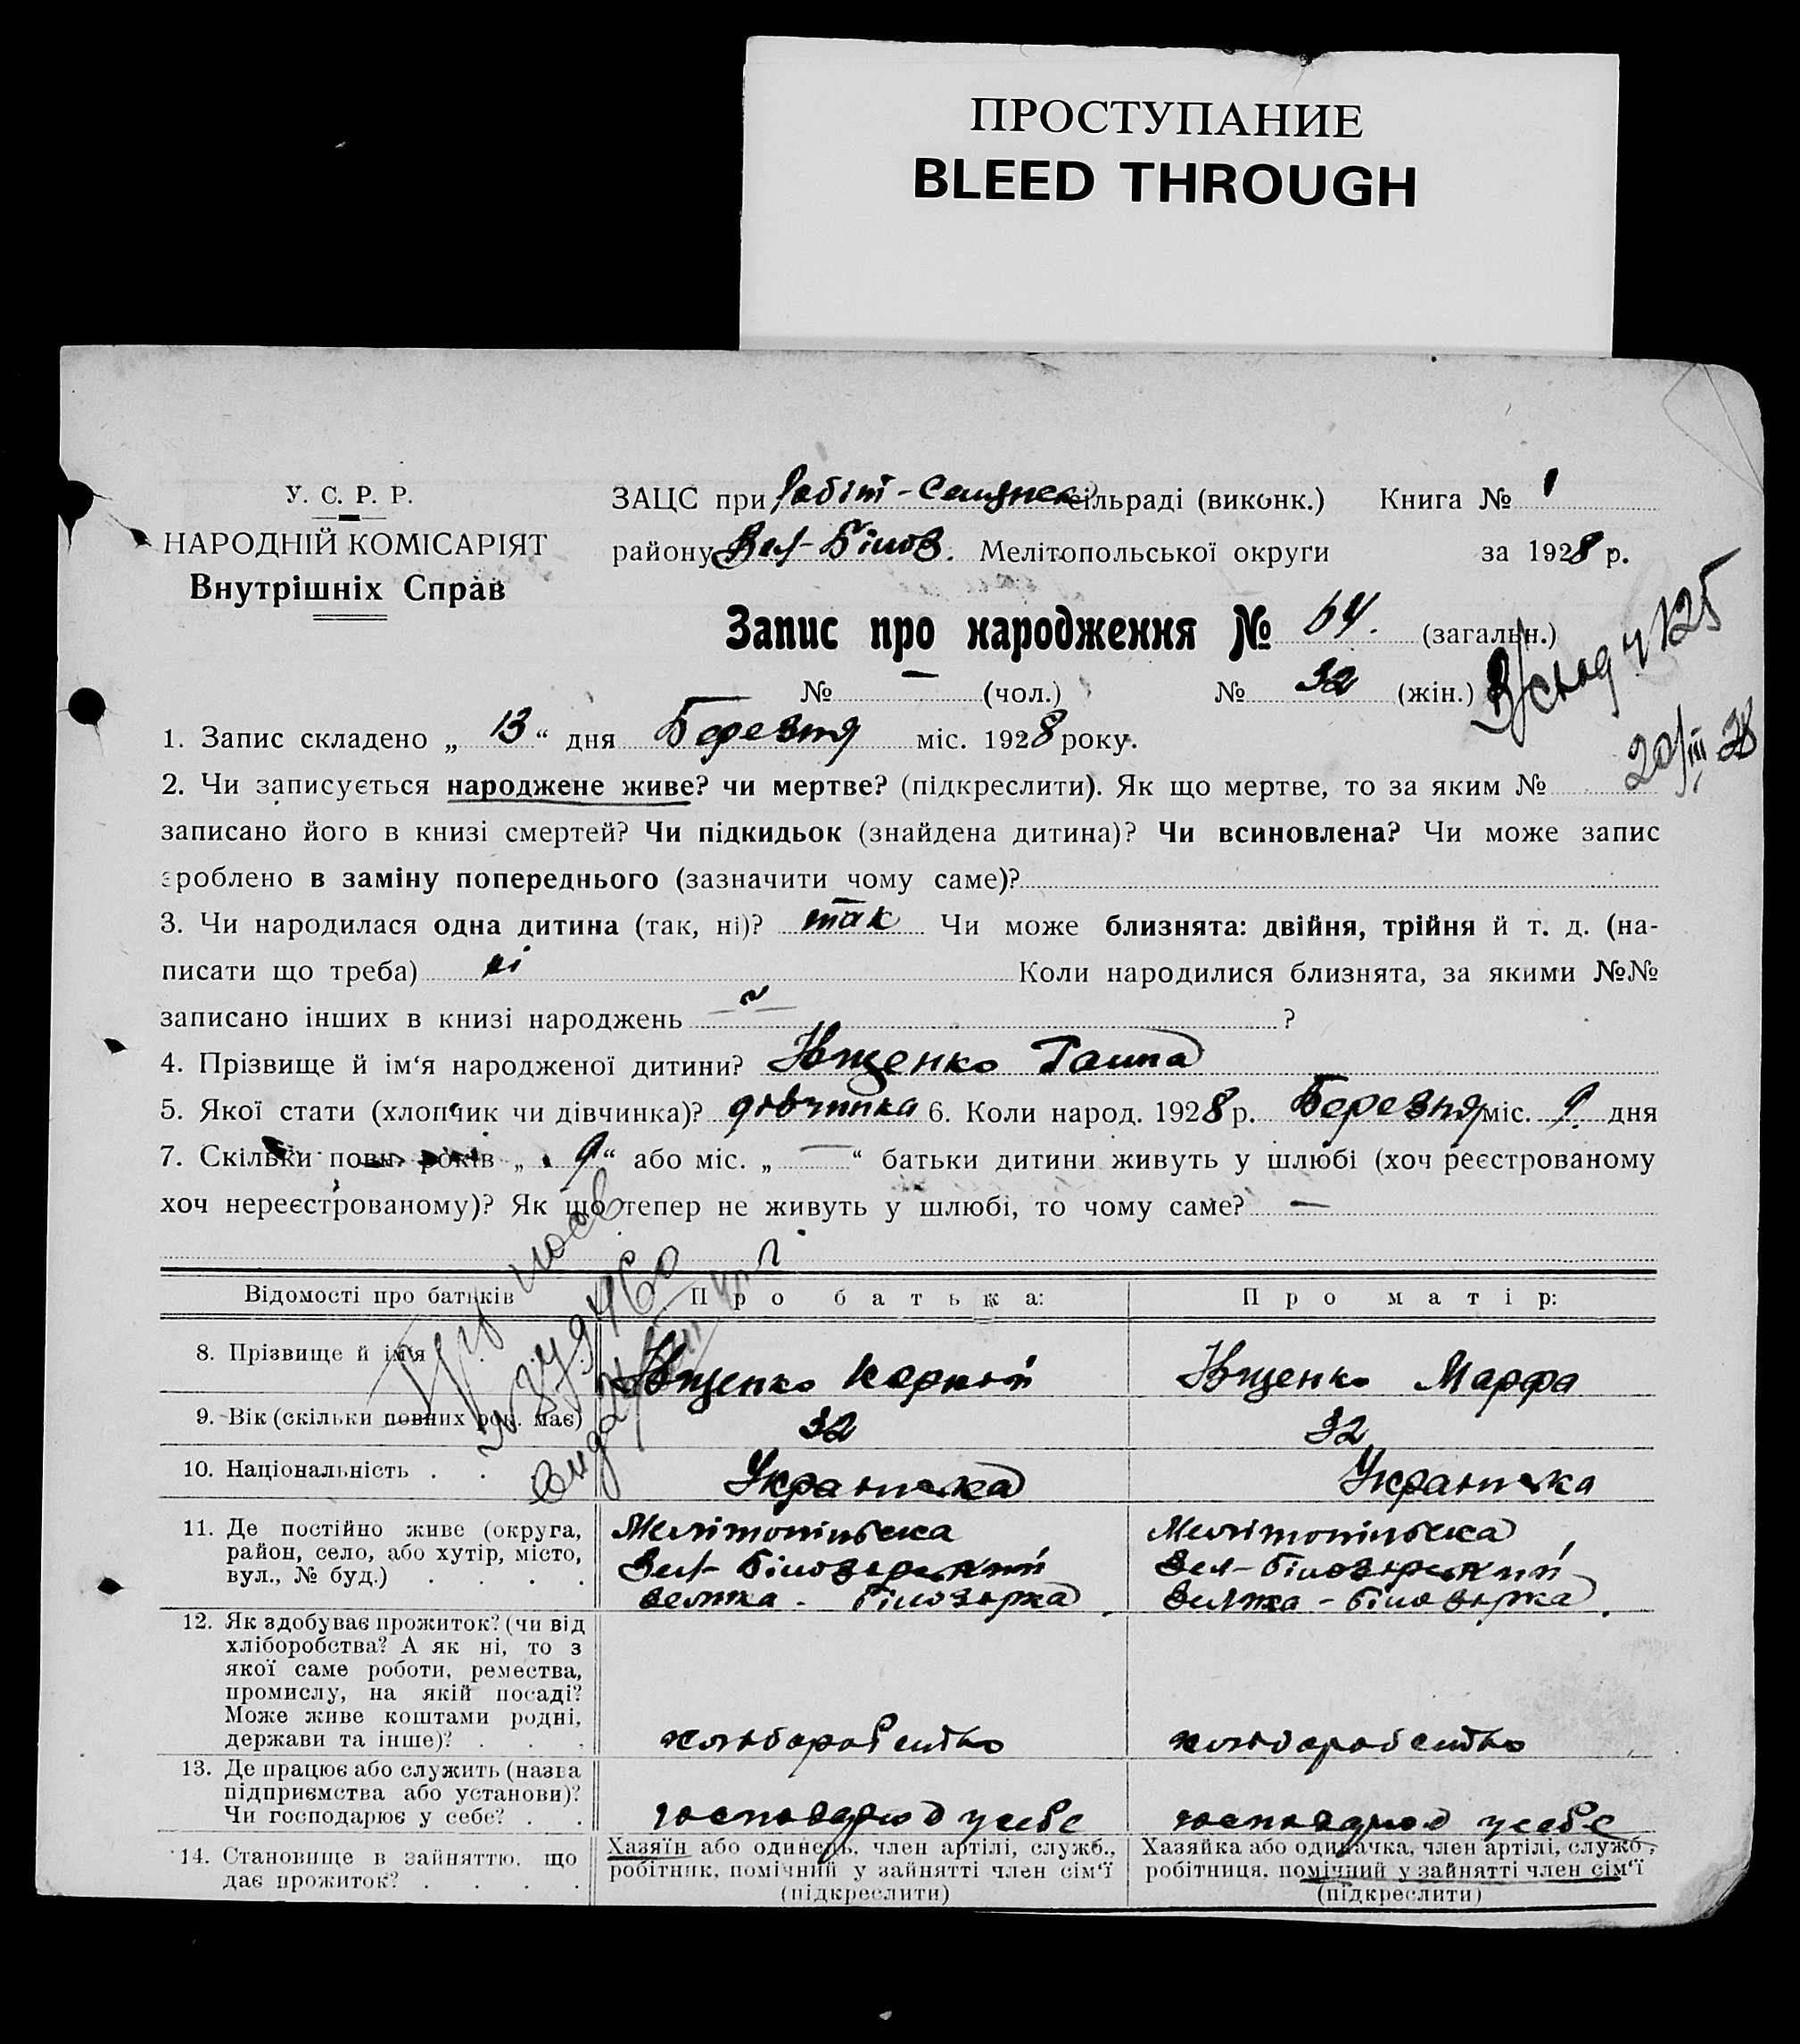 ПРОСТУПАНИЕ
BLEED THROUGH
У. С. Р. Р.
НАРОДНІЙ КОМІСАРІЯТ
Внутрішніх Справ
ЗАЦС при Робіт-Селянск сільраді (виконк.) Книга № 1
району Вел-Білов. Мелітопольської округи за 1928 р.
Запис про народження № 64. (загальн.)
№ — (чол.) № 32 (жін.)
20/III 28
1. Запис складено „ 13 “ дня Березня міс. 1928 року.
2. Чи записується народжене живе? чи мертве? (підкреслити). Як що мертве, то за яким №
записано його в книзі смертей? Чи підкидьок (знайдена дитина)? Чи всиновлена? Чи може запис
зроблено в заміну попереднього (зазначити чому саме)?
3. Чи народилася одна дитина (так, ні)? так Чи може близнята: двійня, трійня й т. д. (на-
писати що треба) ні Коли народилися близнята, за якими №№
записано інших в книзі народжень ?
4. Прізвище й ім‘я народженої дитини? Ющенко Ганна
5. Якої стати (хлопчик чи дівчинка)? дівчинка 6. Коли народ. 1928 р. Березня міс. 9. дня
7. Скільки повн. років „ 9 “ або міс. „ — “ батьки дитини живуть у шлюбі (хоч реєстрованому
хоч нереєстрованому)? Як що тепер не живуть у шлюбі, то чому саме? —
Відомості про батьків Про батька: Про матір:
8. Прізвище й ім‘я Ющенко Корній Ющенко Марфа
9. Вік (скільки повних рок. має) 32 32
10. Національність . . Українска Українска
11. Де постійно живе (округа, район, село, або хутір, місто, вул., № буд.) . . . .
Мелітопільска Мелітопільска
Вел-Білозерский Вел-Білозерский
Велика - Білозерка. Велика - Білозерка.
12. Як здобуває прожиток? (чи від
хліборобства? А як ні, то з
якої саме роботи, ремества,
промислу, на якій посаді?
Може живе коштами родні,
держави та інше)? . . . хліборобство хліборобство
13. Де працює або служить (назва
підприємства або установи)?
Чи господарює у себе? . . господарює у себе господарює у себе
14. Становище в зайняттю, що
дає прожиток? . . . .
Хазяїн або одинець, член артілі, служб.,
робітник, помічний у зайнятті член сім‘ї
(підкреслити)
Хазяйка або одиначка, член артілі, служб.,
робітниця, помічний у зайнятті член сім‘ї
(підкреслити)